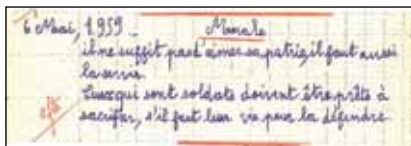 6 Mai, 1959 - Morale
il ne suffit pas d'aimer sa patrie, il faut aussi
la servir.
Ceux qui sont soldats doivent être prêts à
sacrifier, s'il faut leur vie pour la défendre